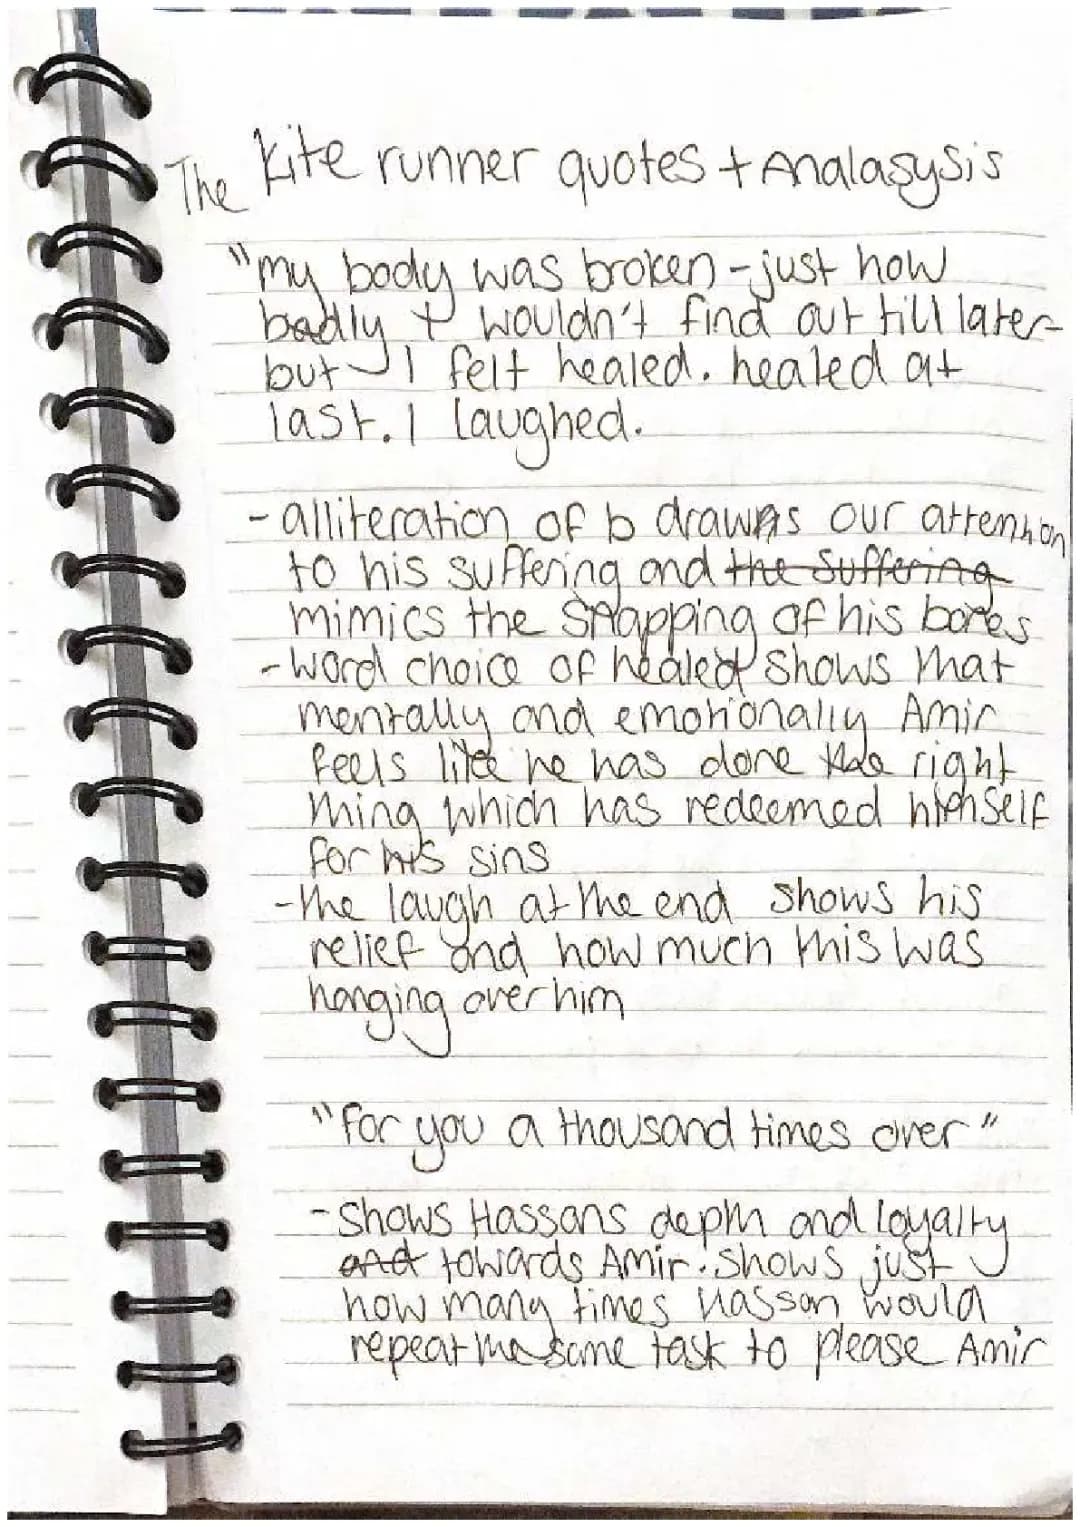 The Kite runner quotes + Analasysis
"my body was broken - just how
badly I wouldn't find out till later-
but I felt healed. healed at
last. I laughed.
- alliteration of b draws our attention
to his suffering and the suffering
mimics the snapping of his bones
- word choice of healed shows that
mentally and emotionally Amir
feels like he has done the right
thing which has redeemed himself
for his sins
- the laugh at the end shows his
relief and how much this was
hanging over him
"for you a thousand times over"
- shows Hassans depth and loyalty
and towards Amir. shows just
how many times Hassan would
repeat the same task to please Amir